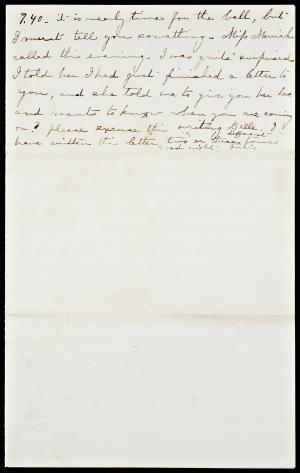 7.40 - it is nearly time for the ball, but
I must tell you something. Miss
called this evening. I was quite surprised
I told her I had just finished a letter to
you, and she told me to give you her love
and wants to know when you are coming
on? please excuse this writing Belle. I
have written this letter two or three different times
good night.